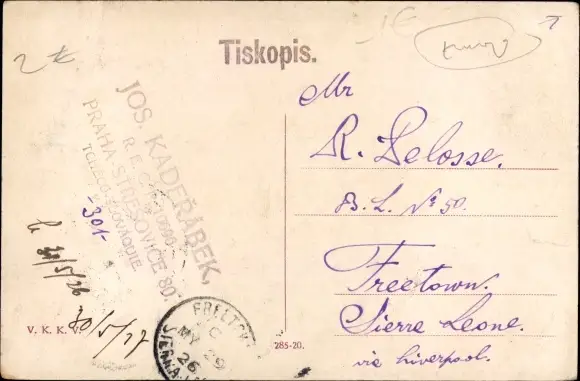 2 €
1 €
Tiskopis.
JOS. KADEŘÁBEK,
R. E. C.
PRAHA-STŘEŠOVICE 80.
-301-
Mr
R. Pelosse.
B. L. Nº 50.
Freetown.
Sierre Leone.
via Liverpool.
FREETOWN
MY 29
26
SIERRA
V. K. K. V.
30/5/27
285-20.